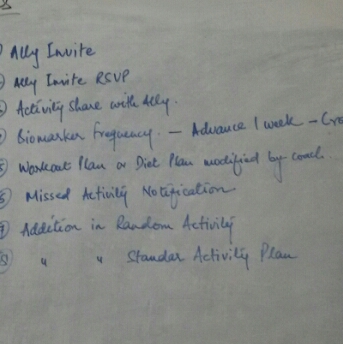 ① Ally Invite
② Ally Invite RSVP
③ Activity share with Ally.
④ Biomarker Frequency. – Advance 1 week – Cro
⑤ Workout Plan or Diet Plan modified by coach.
⑥ Missed Activity Notification
⑦ Addition in Random Activity
⑧ " " Standar Activity Plan